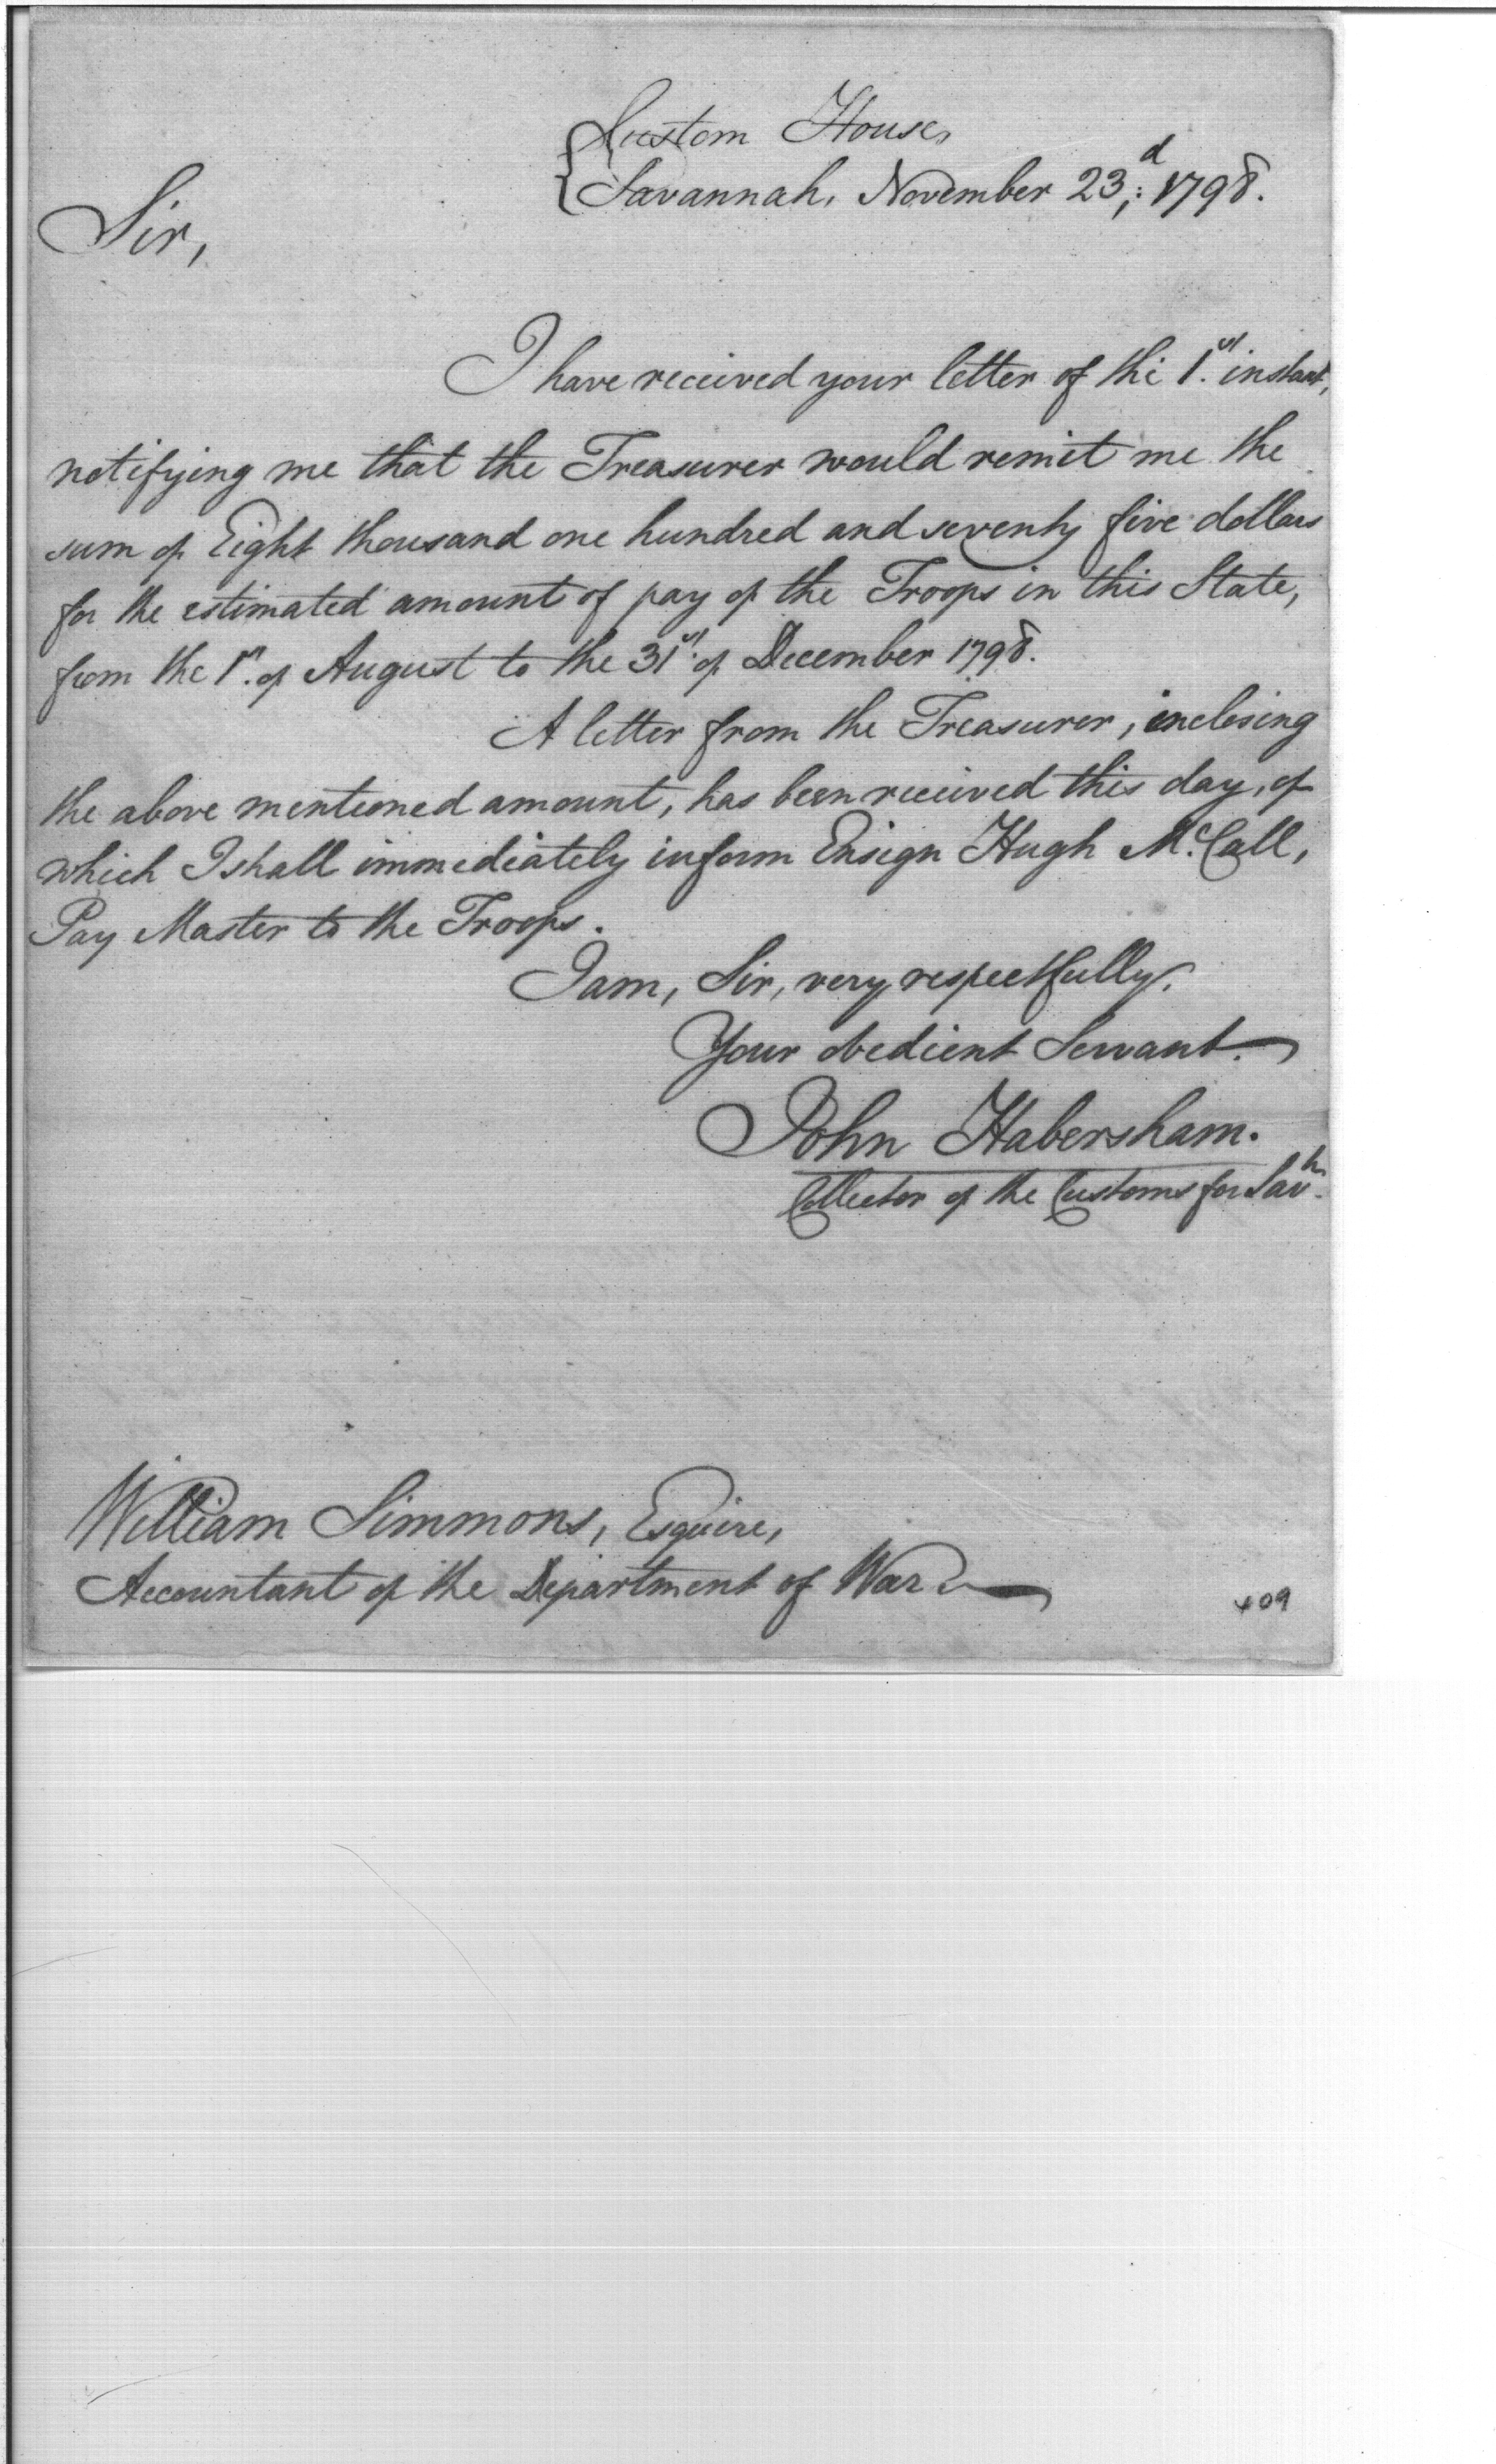 Custom House,
Savannah, November 23,d: 1798.
Sir,
I have received your letter of the 1st. instant,
notifying me that the Treasurer would remit me the
sum of Eight thousand one hundred and seventy five dollars
for the estimated amount of pay of the Troops in this State,
from the 1st. of August to the 31st. of December 1798.
A letter from the Treasurer, inclosing
the above mentioned amount, has been received this day, of
which I shall immediately inform Ensign Hugh McCall,
Pay Master to the Troops.
I am, Sir, very respectfully,
Your obedient Servant.
John Habersham.
Collector of the Customs for Savh.
William Simmons, Esquire,
Accountant of the Department of War
409